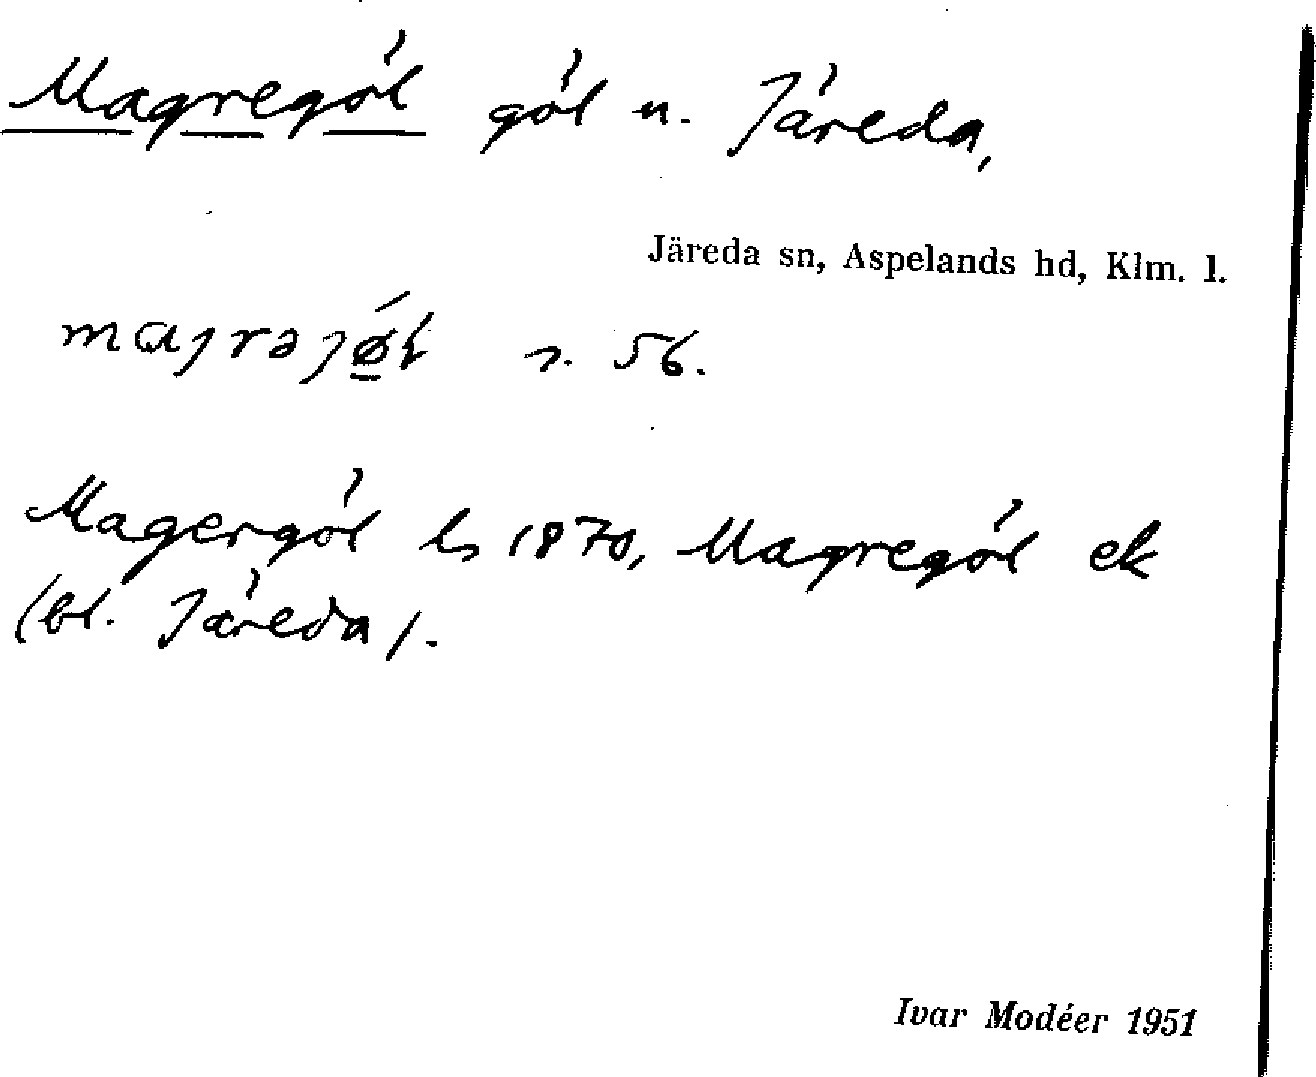 Magregöl göl n. Järeda,
Järeda sn, Aspelands hd, Klm. l.
s. 56.
Magergöl ls 1870, Magregöl ek
(bl. Järeda).
Ivar Modéer 1951